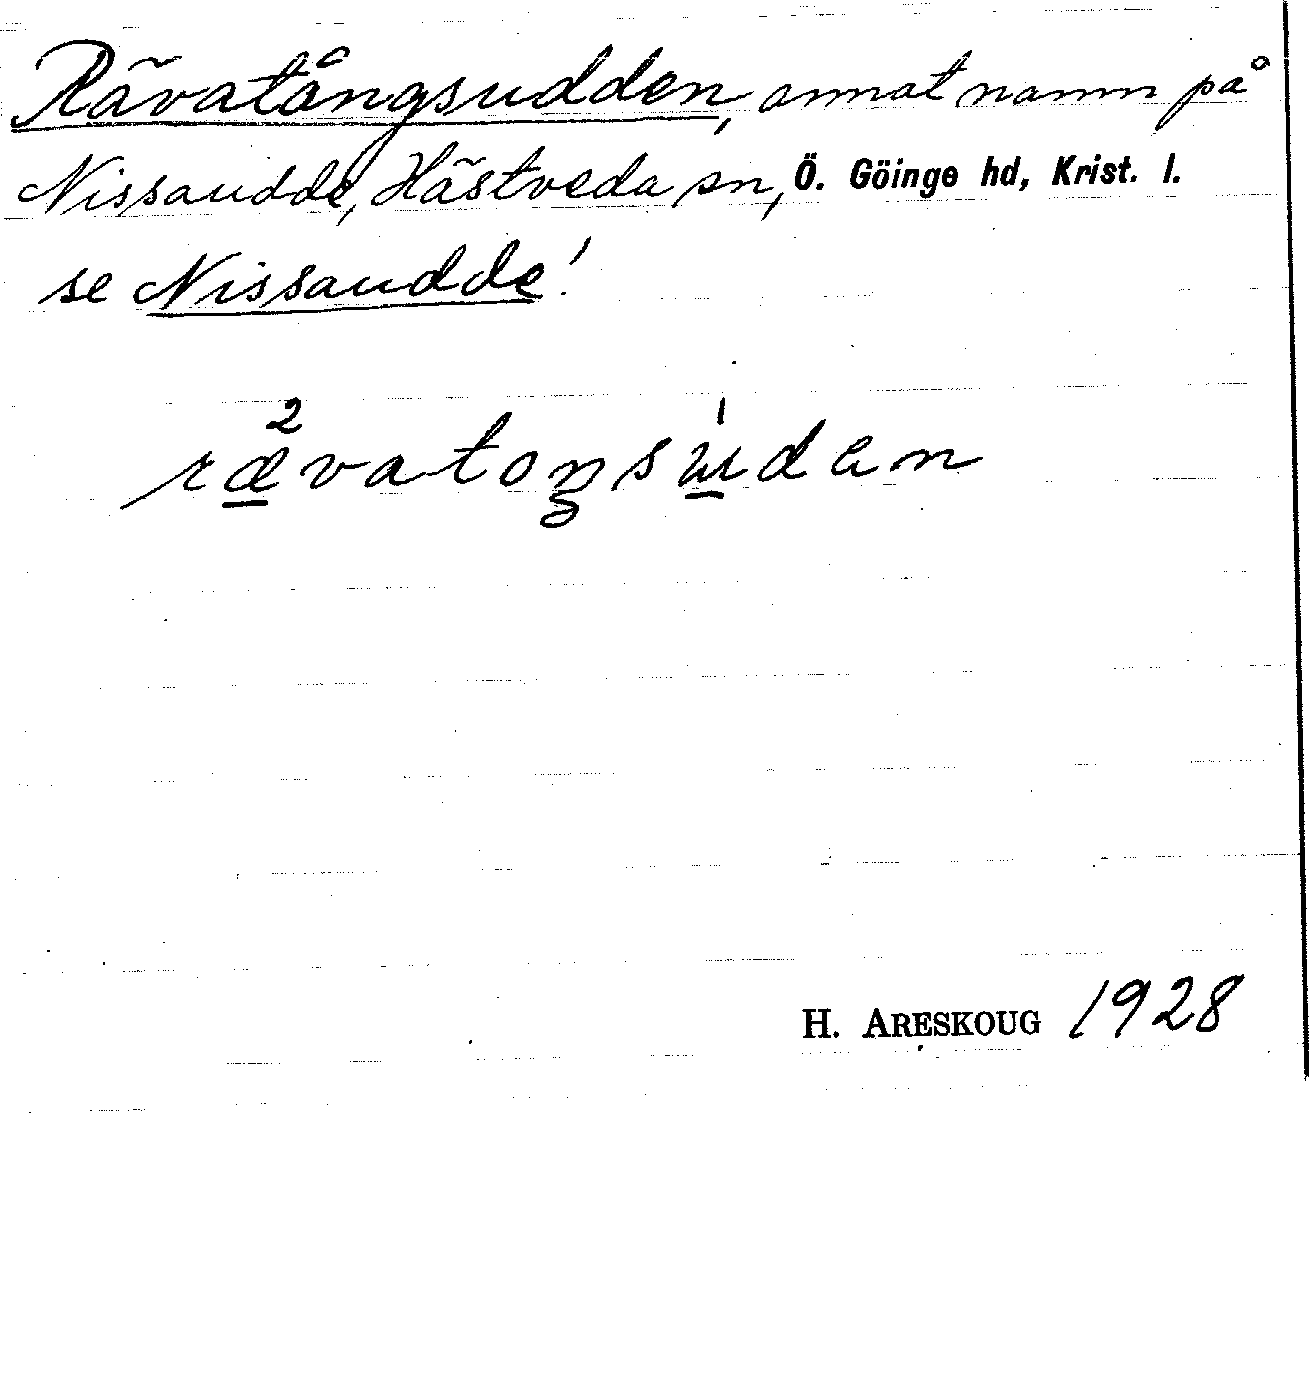 Rävatångsudden, annat namn på
Nissaudde, Hästveda sn, Ö. Göinge hd, Krist. l.
se Nissaudde!
ræ²vatoŋsu̍den
H. ARESKOUG 1928